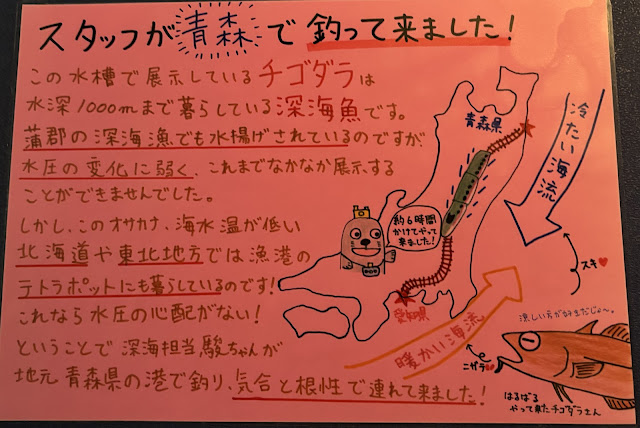 スタッフが青森で釣って来ました!
この水槽で展示しているチゴダラは
水深1000mまで暮らしている深海魚です。
蒲郡の深海漁でも水揚げされているのですが、
水圧の変化に弱く、これまでなかなか展示する
ことができませんでした。
しかし、このオサカナ、海水温が低い
北海道や東北地方では漁港の
テトラポットにも暮らしているのです!
これなら水圧の心配がない!
ということで深海担当駿ちゃんが
地元青森県の港で釣り、気合と根性で連れて来ました!
青森県
冷たい海流
約6時間
かけてやって
来ました!
スキ♥
愛知県
暖かい海流
ニガテ
涼しい方が好きだじょ〜。
はるばる
やって来たチゴダラさん